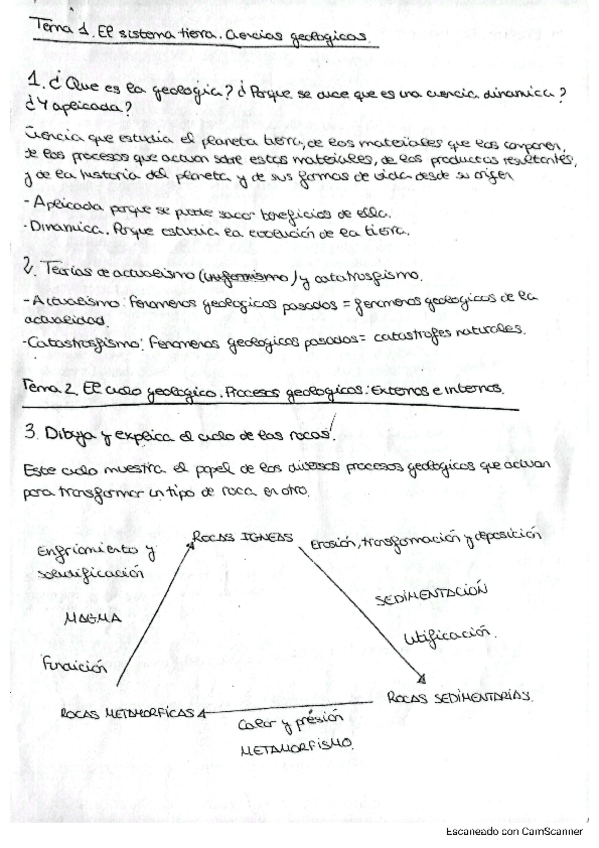 Tema 1. El sistema tierra. Ciencias geologicas.
1. ¿Que es la geologia? ¿Porque se dice que es una ciencia dinamica?
¿Y aplicada?
Ciencia que estudia el planeta tierra, de los materiales que los componen,
de los procesos que actuan sobre estos materiales, de los productos resultantes,
y de la historia del planeta y de sus formas de vida desde su origen
- Aplicada porque se puede sacar beneficios de ella.
- Dinamica. Porque estudia la evolución de la tierra.
2. Teorías de actualismo (uniformismo) y catatrosfismo.
- Actualismo: fenomenos geologicos pasados = fenomenos geologicos de la
actualidad.
- Catastrosfismo: Fenomenos geologicos pasados = catastrofes naturales.
Tema 2. El ciclo geologico. Procesos geologicos: Externos e internos.
3. Dibuja y explica el ciclo de las rocas.
Este ciclo muestra el papel de los diversos procesos geológicos que actuan
para transformar un tipo de roca en otro.
ROCAS IGNEAS
Enfriamiento y
solidificación
Erosión, transformación y deposición
MAGMA
SEDIMENTACIÓN
Litificación.
Fundición
ROCAS METAMORFICAS
ROCAS SEDIMENTARIAS.
Calor y presión
METAMORFISMO.
Escaneado con CamScanner